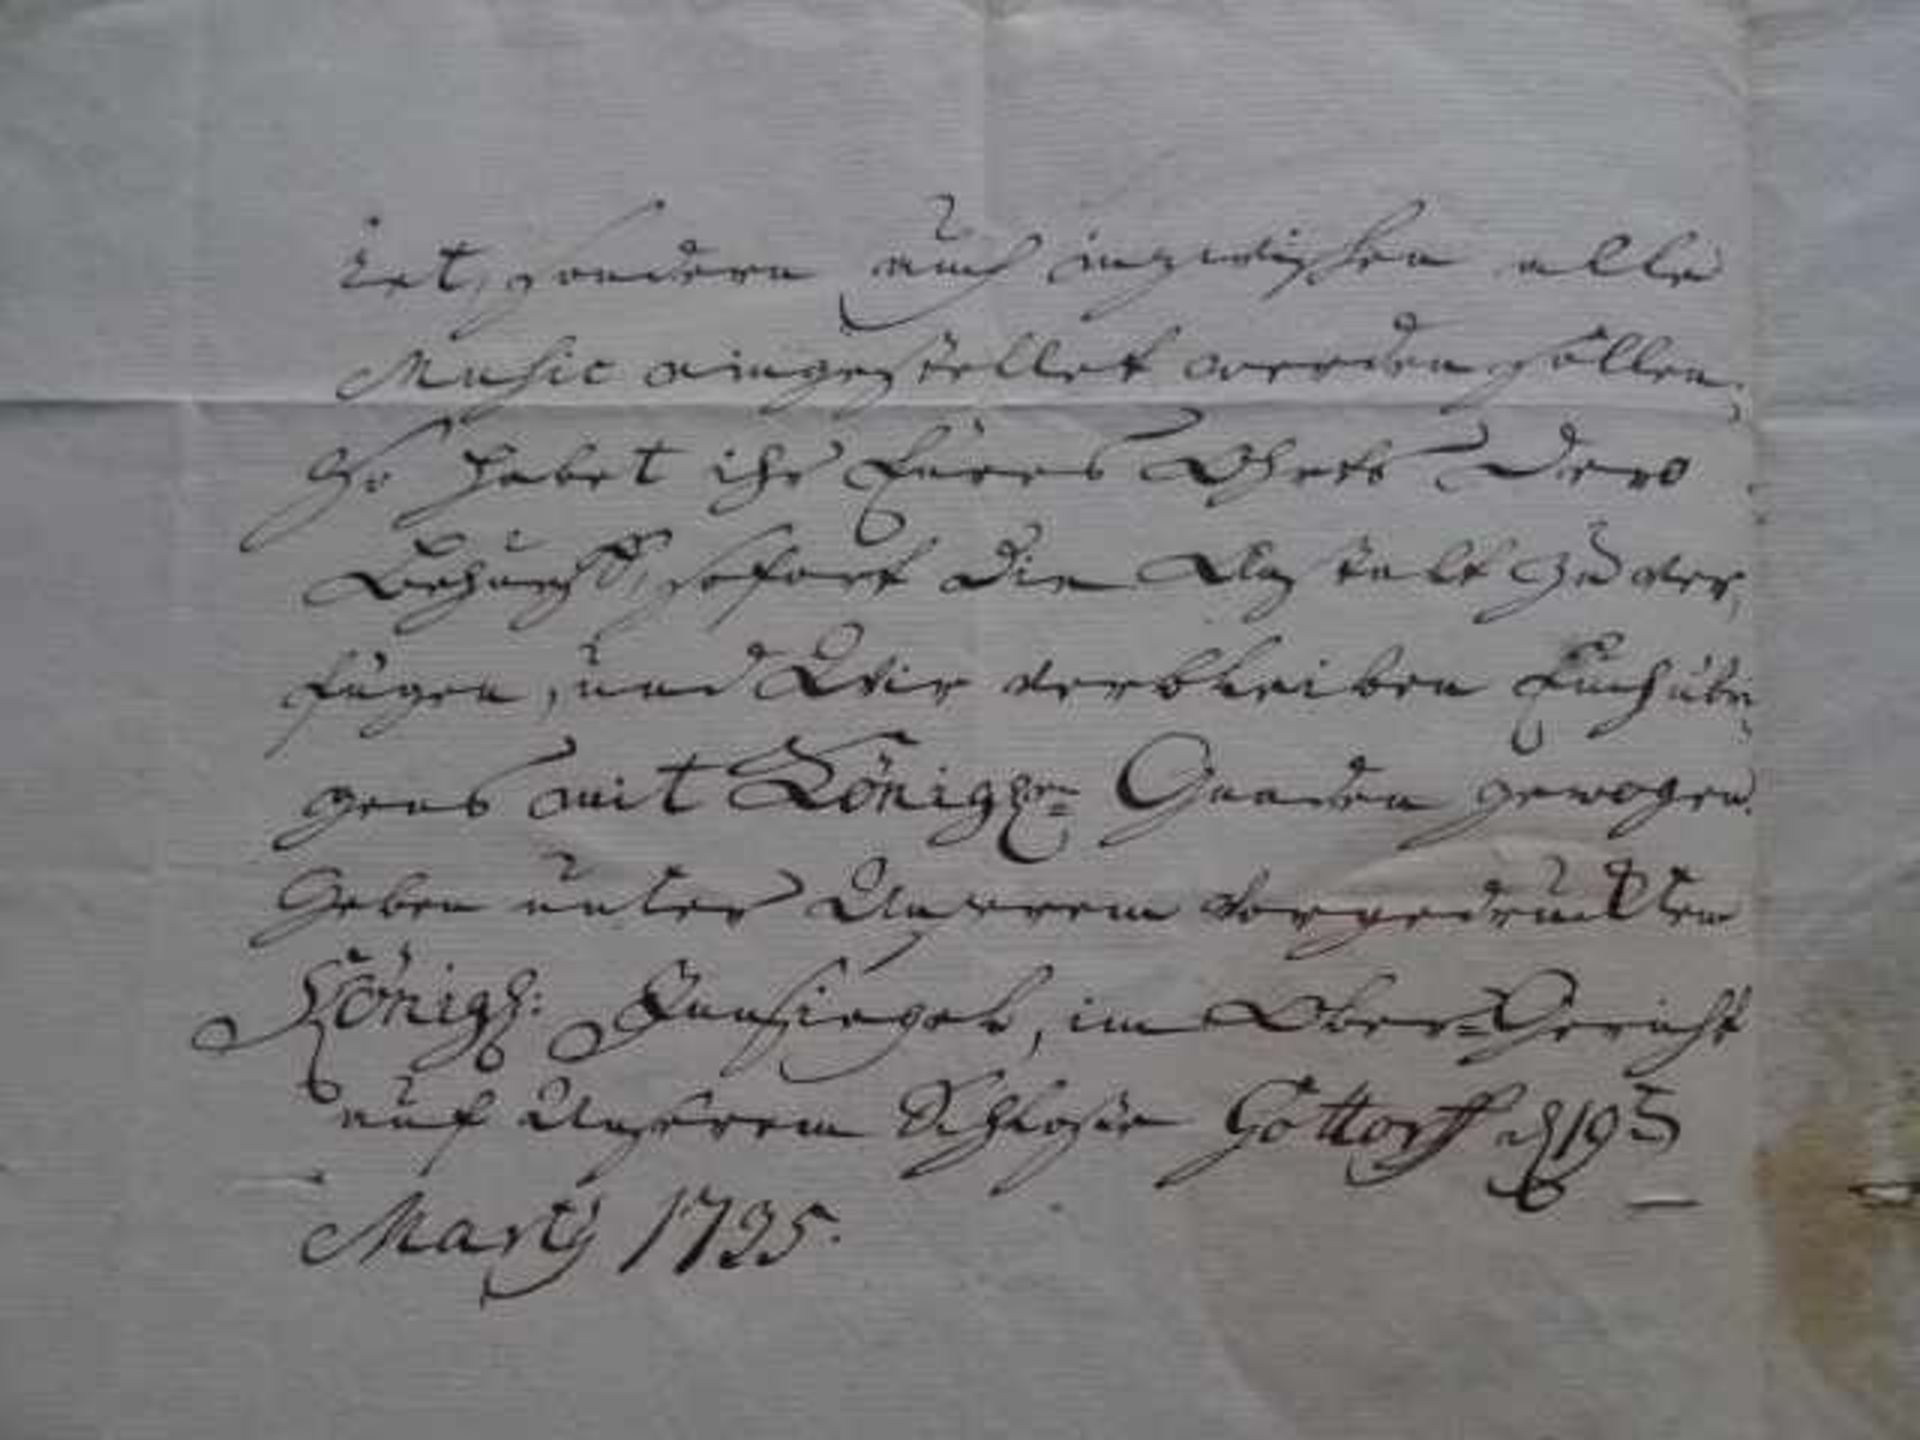 tet, sondern auch inzwischen alle
Music eingestellet werden sollen,
So habet ihr Eures Ohrts Dero
Behueff, sofort die Anstalt zu ver,
fügen, und Wir verbleiben Euch übri,
gens mit Königl.en Gnaden gewogen.
Geben unter Unserem vorgedruckten
Königl: Insiegel, im Ober-Gericht
auf Unserem Schloße Gottorff d 19t
Martÿ 1735.